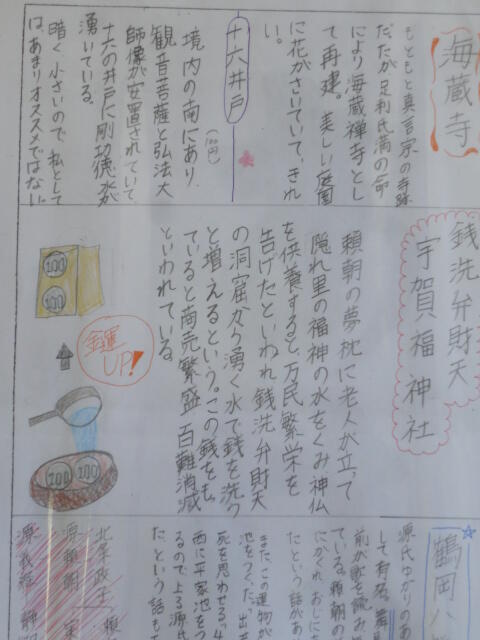 海蔵寺
もともと真言宗の寺跡
だったが足利氏満の命
により海蔵禅寺とし
て再建。美しい庭園
に花がさいていて、きれ
い。
十六井戸
(100円)
境内の南にあり
観音菩薩と弘法大
師像が安置されていて
十六の井戸に
湧いている。
暗く小さいので、私として
はあまりオススメではない
銭洗弁財天
宇賀福神社
頼朝の夢枕に老人が立って
隠れ里の福神の水をくみ神仏
を供養すると、万民繁栄を
告げたといわれ銭洗弁財天
の洞窟から湧く水で銭を洗う
と増えるという。この銭をも
っていると商売繁盛 百難消滅
といわれている。
100
100
金運
UP!
100
100
鶴岡八
源氏ゆかりの
して有名。
前が歌を読み
ている。頼朝の
にかくれ
たという話があ
また、この建物が
池をつくった。出
死を思わせる"4
西に平家池をつ
るので上る源氏
たという話も
北条政子
源頼朝
源義経
静御